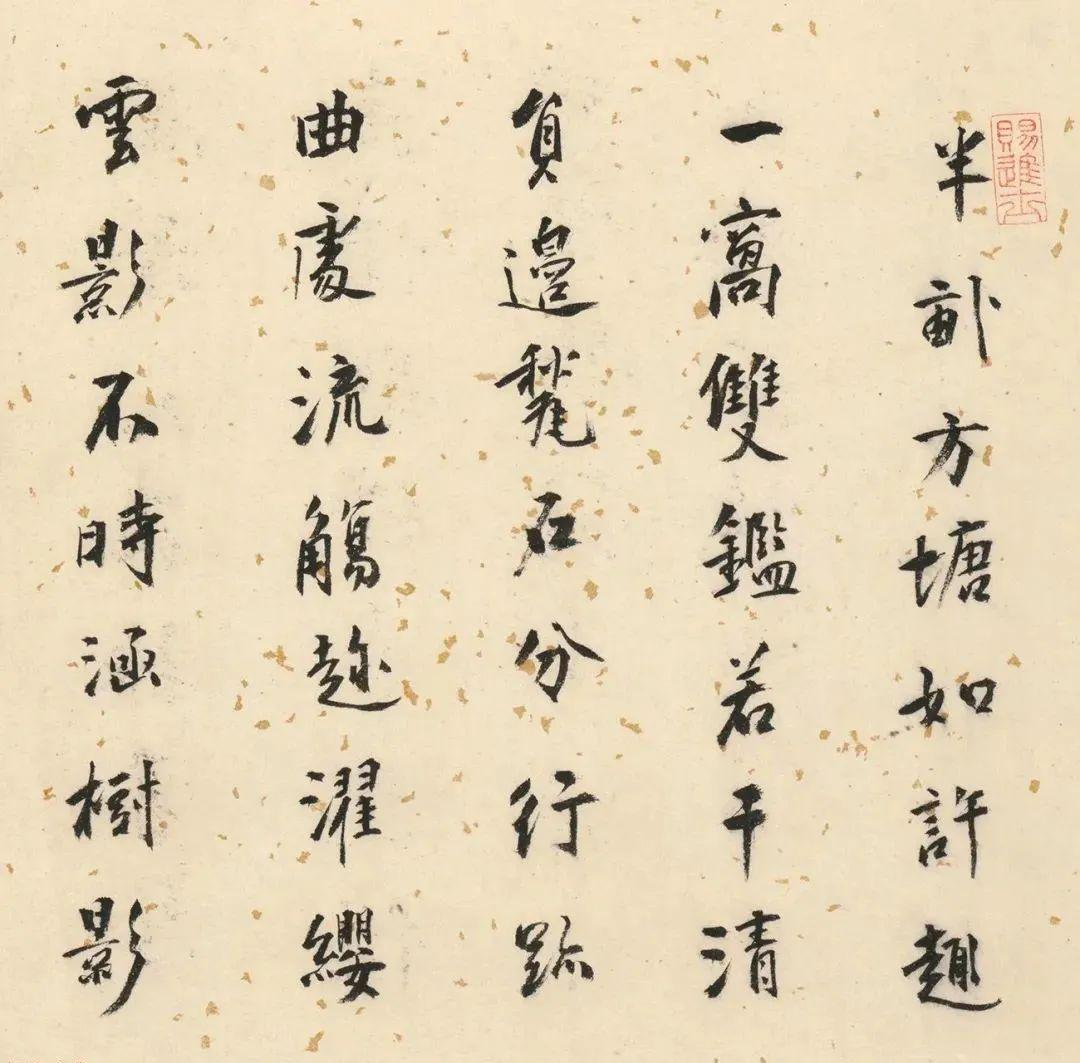 賜進士
半畝方塘如許趣
一窩雙鑑若干清
員邊甃石分行跡
曲處流觴趂濯纓
雲影不時涵樹影